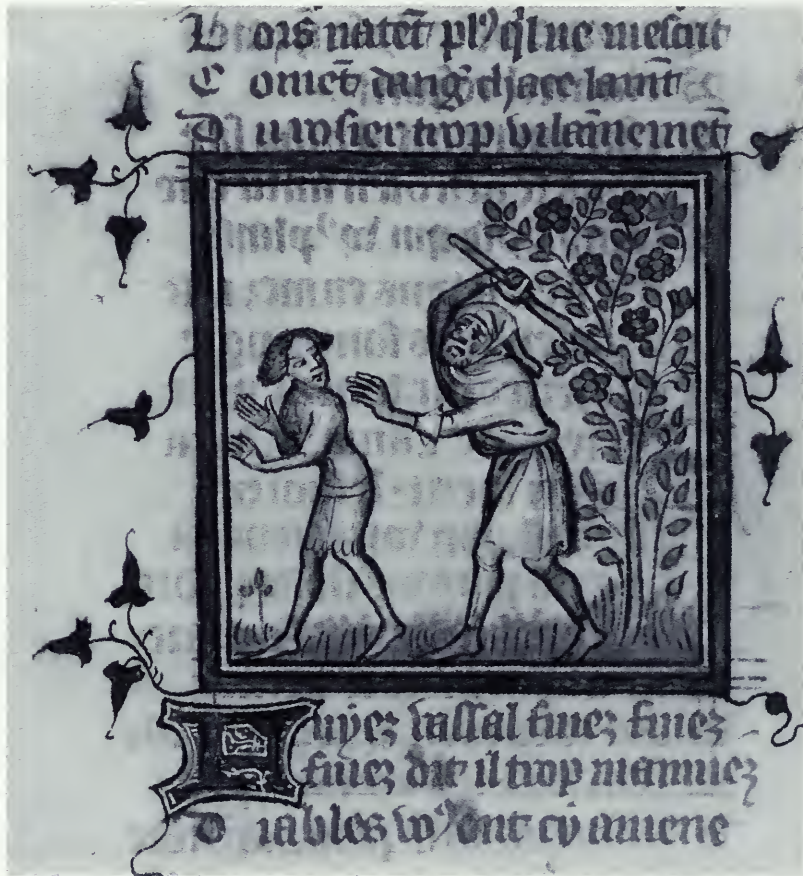 L ors natēt pl⁹ q̕l ne mescrit
C omēt dang̕ chace lamt
D u rosier trop vilāinemēt
F uyez vassal fuiez fuiez
fuiez dit il trop mannuiez
D iables vo⁹ ont cy amene